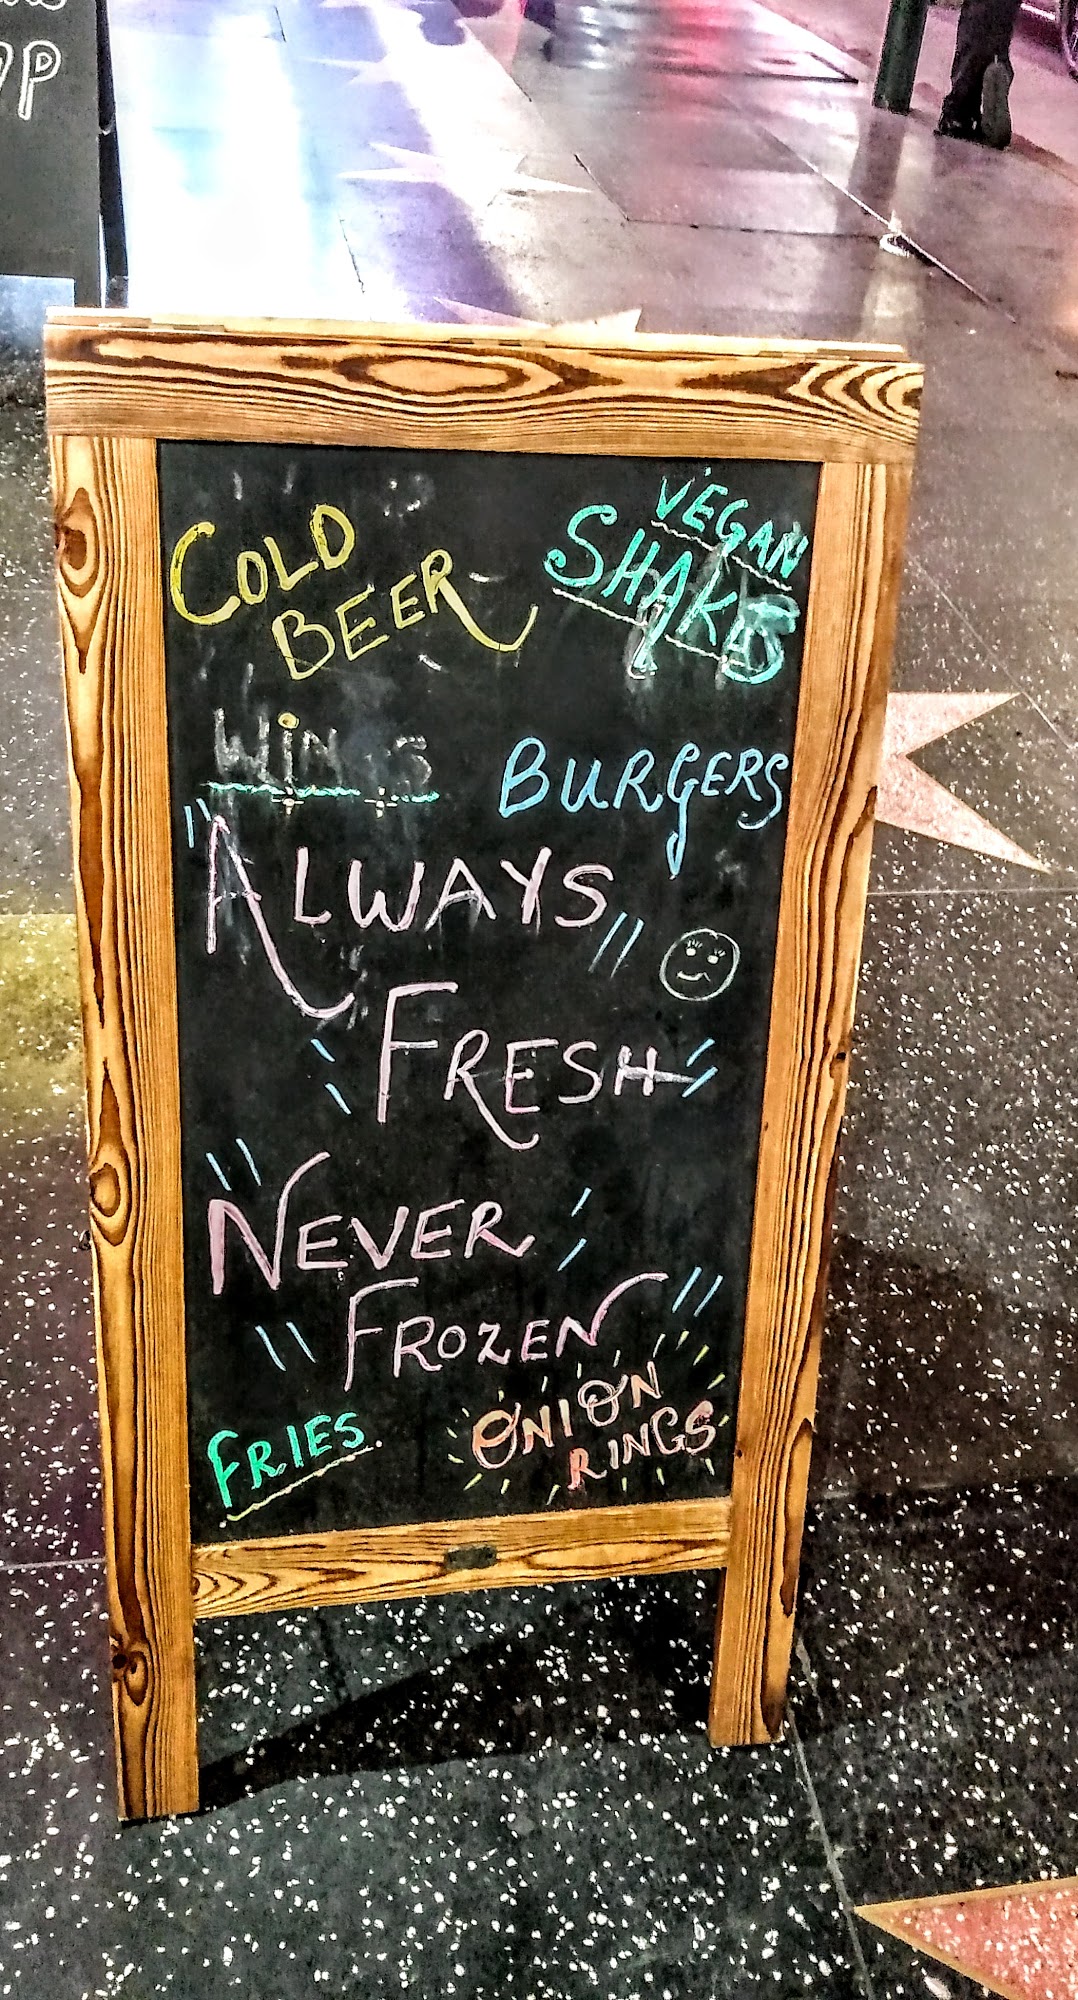 COLD
BEER
VEGAN
SHAKES
WiNGS
BURGERS
"ALWAYS"
FRESH
NEVER
FROZEN
FRIES.
ONION
RINGS